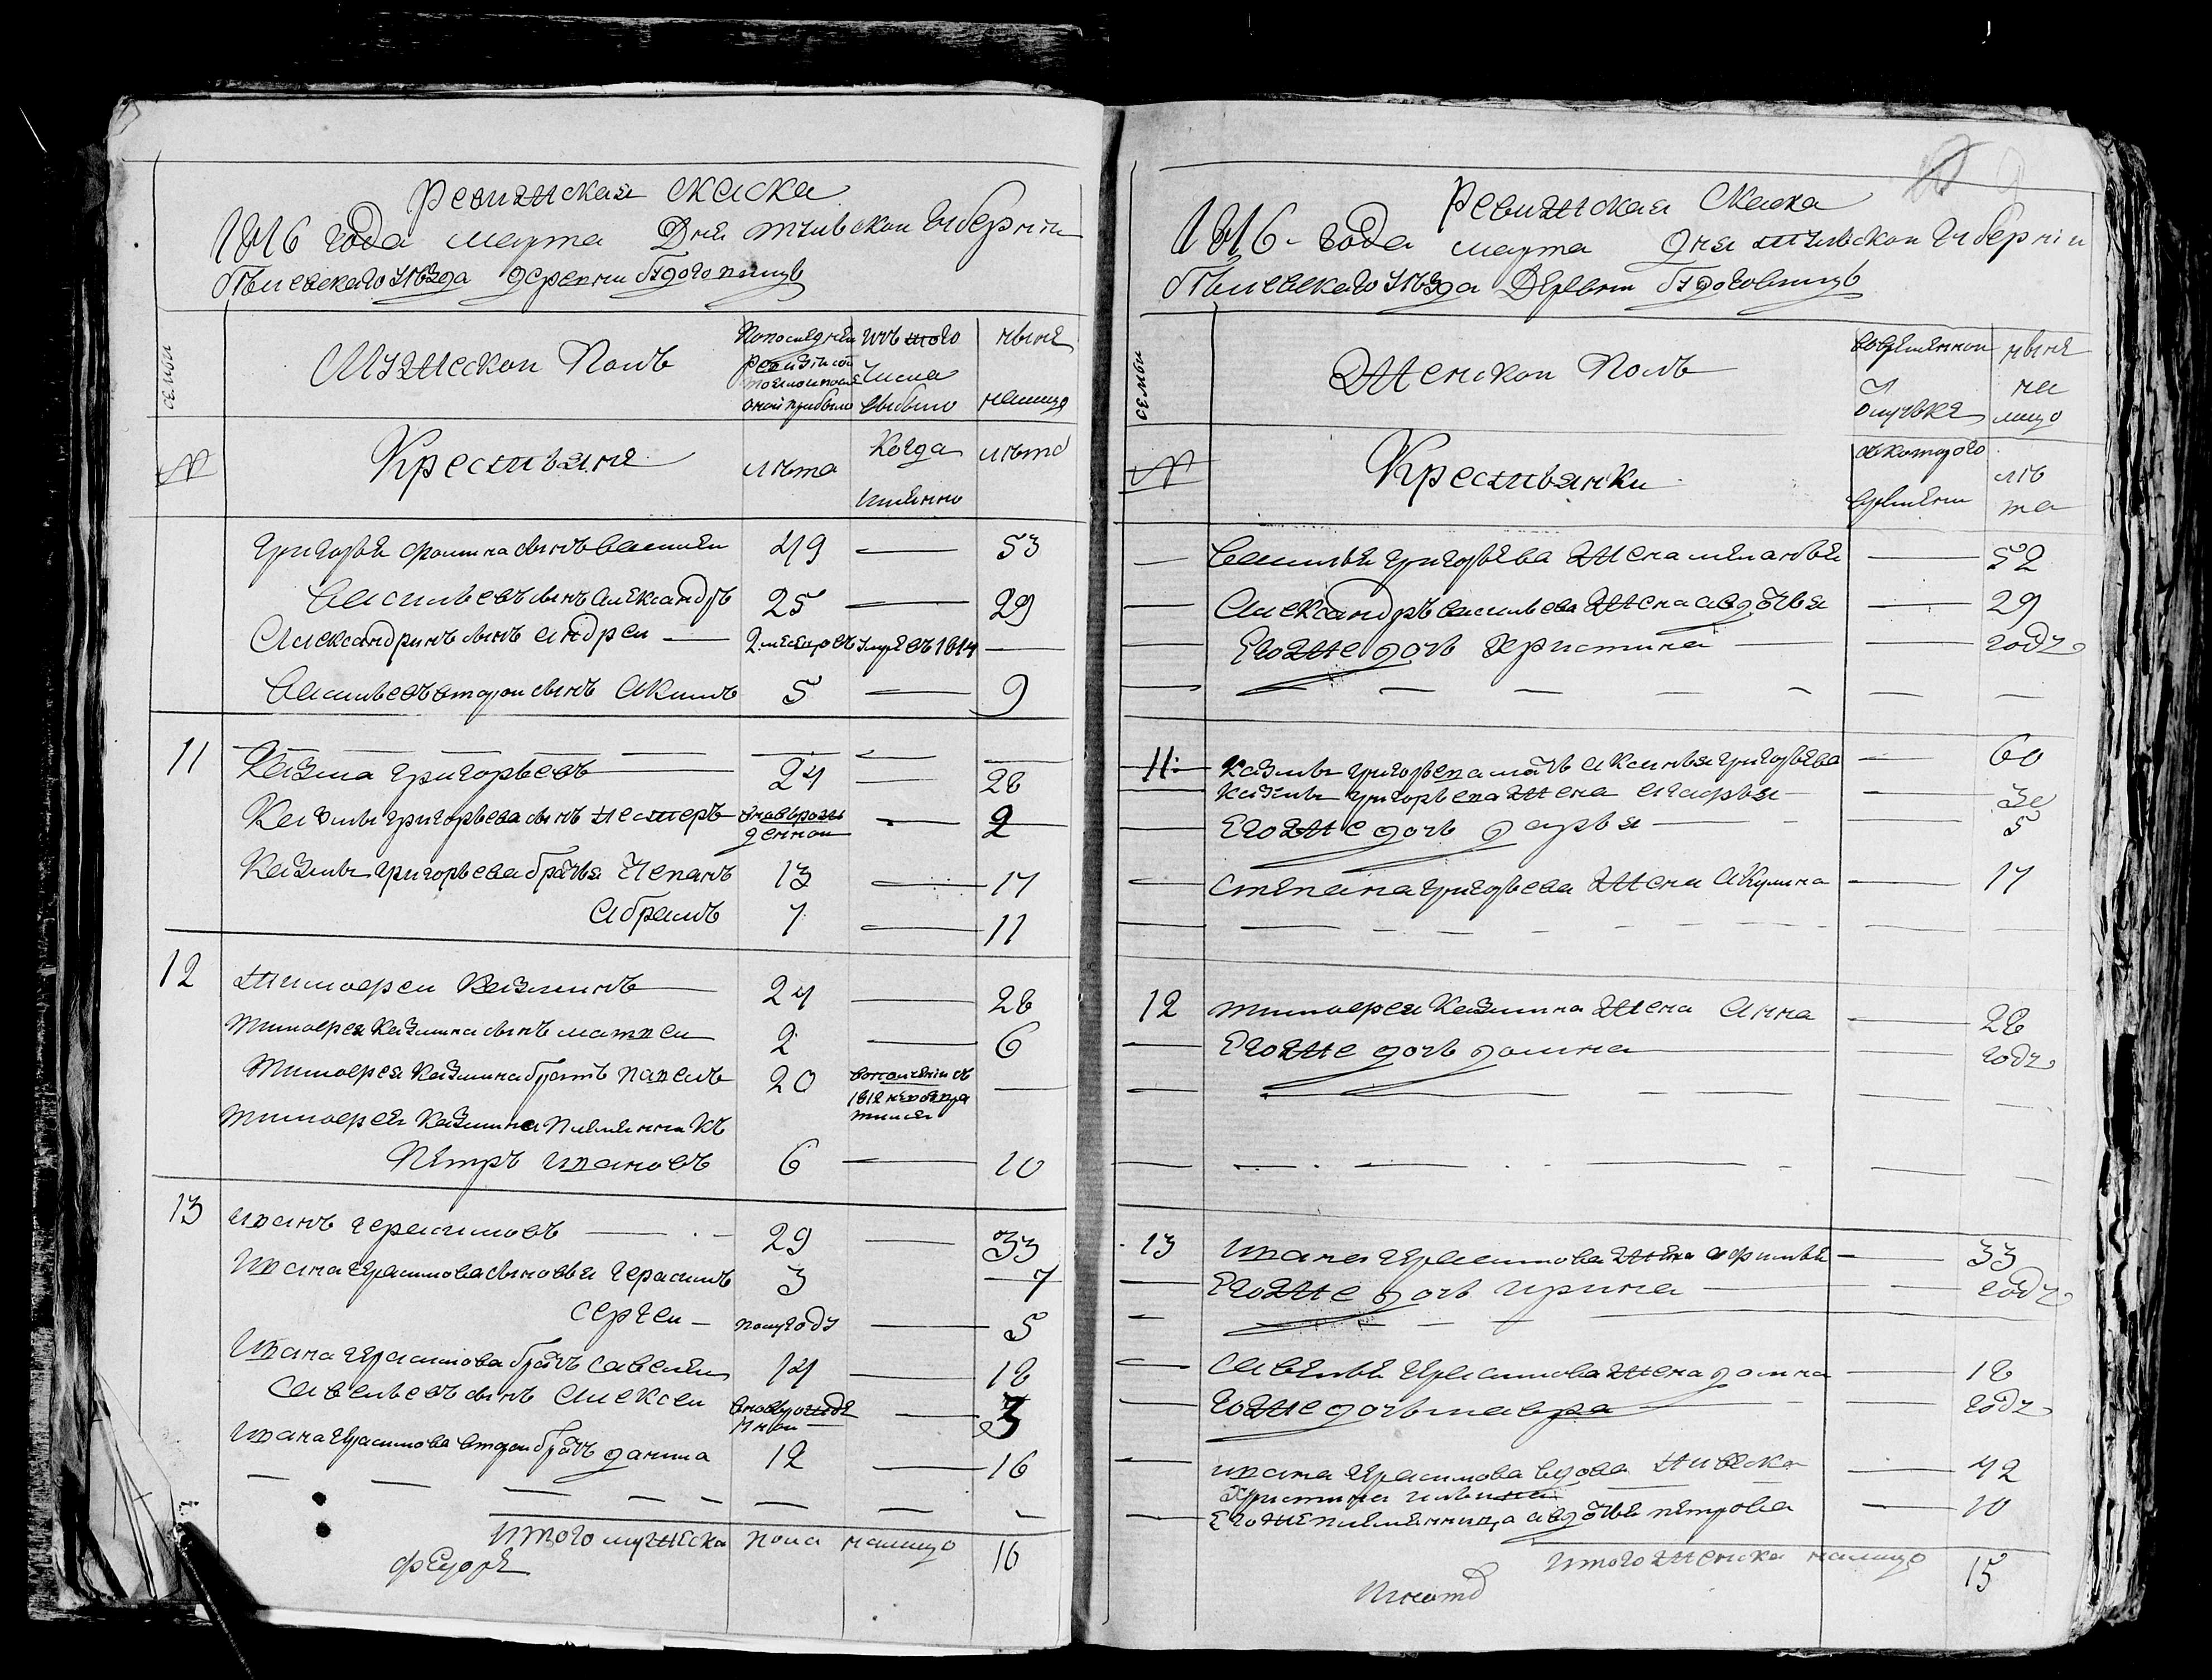 Ревижская скаска
1816 года марта Дня тульскои губернiи
бѣлевскаго уѣзда деревни будоговищъ
семьи
Мужескои Полъ
Попоследней ревизiи состояло ипосле оной прибыло
Изъ того числа выбыло
ныне налицо
№
Крестьяне
лѣта
Когда имянно
лѣта
Григорья фомина сынъ василеи 49 — 53
васильевъ сынъ александръ 25 — 29
Александринъ сынъ андреи — 2 месецовъ умре въ 1814 —
васильевъ второи сынъ акимъ 5 — 9
11 Казма григорьевъ 24 — 28
Казмы григорьева сынъ нестеръ вновьрожденнои — 2
Казмы григорьева братья степанъ 13 — 17
абрамъ 7 — 11
12 тимофеи Казминъ 24 — 28
тимофея Казмина сынъ матвеи 2 — 6
тимофея Казмина братъ павелъ 20 вополчении съ 1812 невозвратился —
тимофея Казмина племянникъ
Петръ ивановъ 6 — 10
13 иванъ герасимовъ — 29 — 33
Ивана герасимова сыновья герасимъ 3 — 7
сергеи — полугоду — 5
Ивана герасимова братъ савелеи 14 — 18
савельевъ сынъ алексеи вноврожденнои — 3
Ивана герасимова второи братъ данила 12 — 16
итого мужеска пола налицо 16
федоре
Ревижская Скаска
1816 - года марта дня тульскои губернiи
бѣлевскаго уѣзда Деревни будоговищъ
семьи
Женскои Полъ
вовременнои отлучке
ныне на лицо
№
Крестьянки
съкоторого времени
лѣта
— василья григорьева жена меланья — 52
— александръ васильева жена авдотья — 29
— Егоже дочь христина — году
11 Казмы григорьева мать аксинья григорьева — 60
— Казмы григорьева жена агафья — 30
— Егоже дочь дарья — 5
— степана григорьева жена акулина — 17
12 тимофея Казмина жена анна — 28
— Егоже дочь домна — году
13 Ивана герасимова жена афимья — 33
— Егоже дочь ирина — году
— савелья герасимова жена домна — 18
— Егоже дочь мавра — году
— ивана герасимова вдова
Христина
— Егоже племянница авдотья петрова — 10
итого женска налицо 15